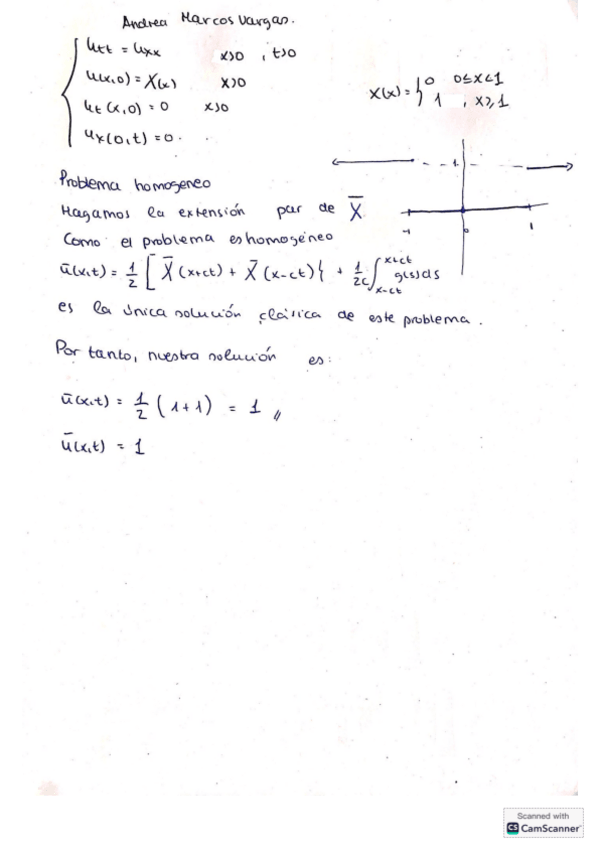 Andrea Marcos Vargas.
utt = uxx x>0 , t>0
u(x,0) = X(x) x>0
ut (x,0) = 0 x>0
ux(0,t) = 0.
X(x) = { 0 0≤x<1
1 , x≥1
1
-1 0 1
Problema homogeneo
Hagamos la extensión par de X̅
Como el problema es homogéneo
ū(x,t) = 1/2 [ X̅(x+ct) + X̅(x-ct) } + 1/2c ∫ x+ct x-ct g(s)ds
es la única solución clásica de este problema.
Por tanto, nuestra solución es:
ū(x,t) = 1/2 ( 1+1) = 1 //
ū(x,t) = 1
Scanned with
CS CamScanner